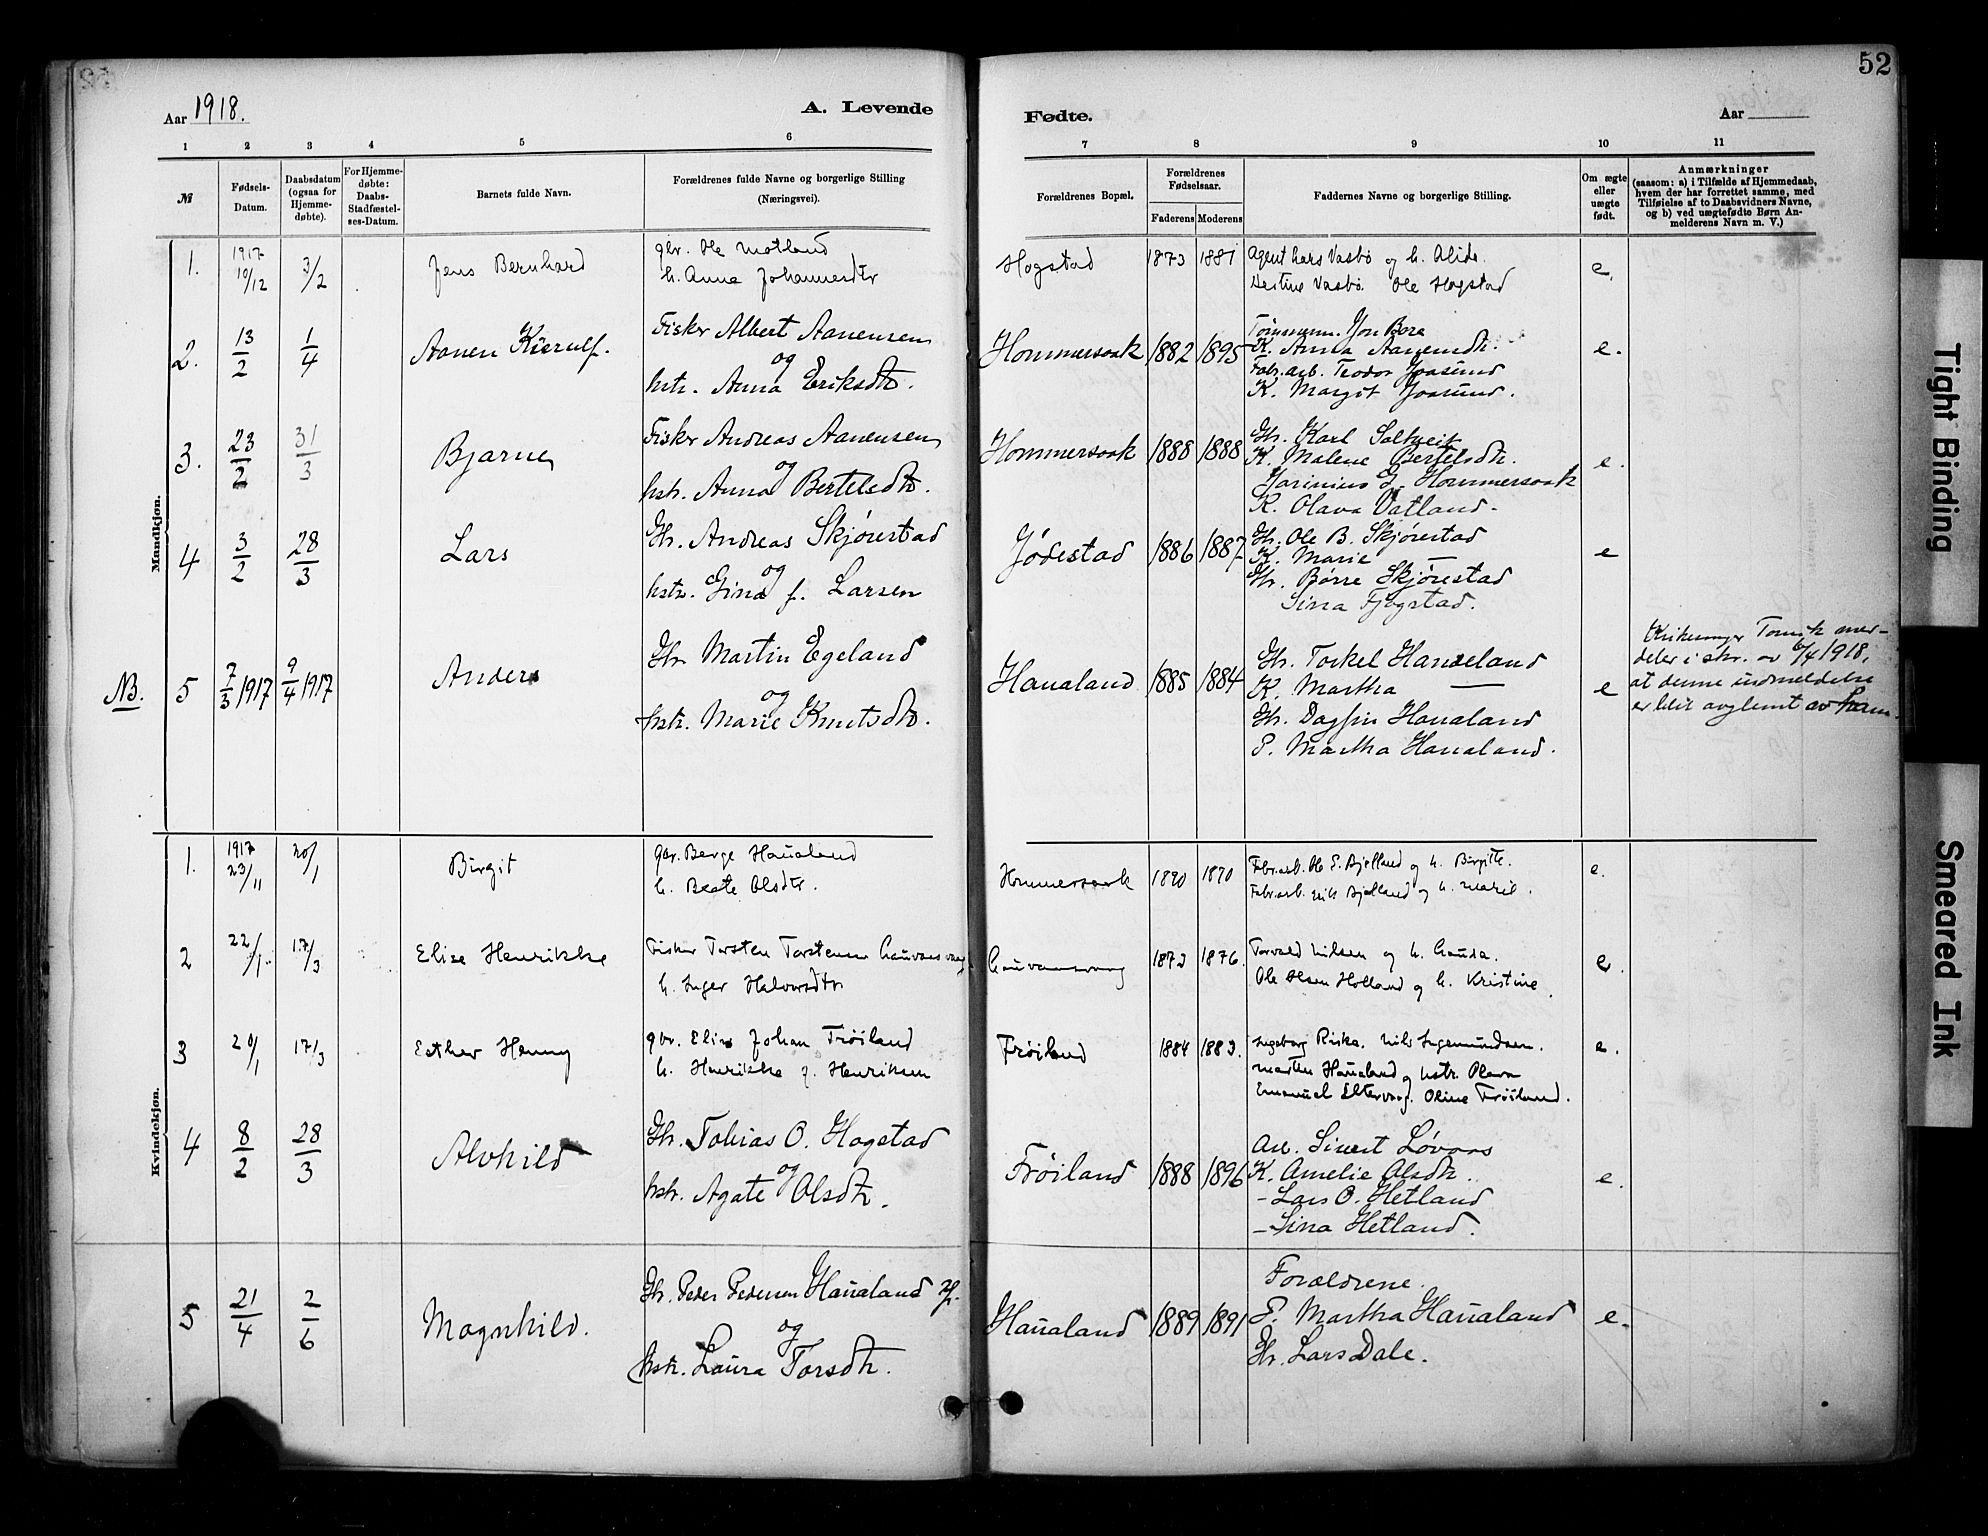 52
Aar 1918.
A. Levende
Fødte.
Aar
1 2 3 4 5 6 7 8 9 10 11
№
Fødsels-Datum.
Daabsdatum (ogsaa for Hjemmedøbte).
For Hjemmedøbte: Daabs-Stadfæstelses-Datum.
Barnets fulde Navn.
Forældrenes fulde Navne og borgerlige Stilling
(Næringsvei).
Forældrenes Bopæl.
Forældrenes Fødselsaar.
Faderens Moderens
Faddernes Navne og borgerlige Stilling.
Om ægte eller uægte født.
Anmærkninger
(saasom: a) i Tilfælde af Hjemmedaab,
hvem der har forrettet samme, med
Tilføielse af to Daabsvidners Navne,
og b) ved uægtefødte Børn An-
melderens Navn m. V.)
Mandkjøn.
1. 1917 10/12 3/2 Jens Bernhard
gbr. Ole Motland
h. Anna Johannesdtr
Hogstad 1873 1881
Agent Lars Vasbø og h. Alida.
Vasbø Ole Hogstad
e.
2. 13/2 1/4 Aanen Kierulf.
Fisker Albert Aanensen
og
hstr. Anna Eriksdtr.
Hommersaak 1882 1895
Tømmerm. Jon Bore
K. Anna Aanensdtr.
Fabr.arb. Teodor Joasund
K. Margit Joasund.
e.
3. 23/2 31/3 Bjarne
Fisker Andreas Aanensen
og
hstr. Anna Bertelsdtr.
Hommersaak 1888 1888
Gbr. Karl Soltveit
K. Malene Bertelsdtr.
Hommersaak
K. Olava Vatland.
e.
4 3/2 28/3 Lars
Gbr. Andreas Skjørestad
og
hstr. Gina f. Larsen
Jødestad 1886 1887
Gbr. Ole B. Skjørestad
K. Marie —
Gbr. Børre Skjørestad
Sina Fjogstad.
e
NB. 5 7/3 1917 9/4 1917 Anders
Gbr Martin Egeland
og
hstr. Marie Knutsdtr.
Haualand 1885 1884
Gbr. Torkel Hanæland
K. Martha —
Gbr. Dagfin Haualand
P. Martha Haualand.
e
Kirkesanger Tonsk med-
deler i skr. av 6/4 1918,
at denne indmeldelse
er blit avglemt av ham.
Kvindekjøn.
1. 1917 23/11 20/1 Birgit
gbr. Berge Haualand
h. Beate Olsdtr.
Hommersaak 1890 1870
Fabr.arb. Ole E. Bjelland og h. Birgitte.
Fabr.arb. Nils Bjelland og h. Marie.
e.
2 22/1 17/3 Elise Henrikke
Fisker Torsten Torstensen
h. Inger Halvorsdtr
1873 1876.
Torvald Nilsen og h.
Ole Olsen Holland og h. Kristine.
e.
3 20/1 17/3 Esther Henny
gbr. Elias Johan Frøiland
h. Henrikke f. Henriksen
Frøiland 1884 1883.
Ingeborg Riska. Nils Ingemundsen.
Martin Haualand og hstr. Olava
Emanuel Eltervaag. Oline Frøiland.
e.
4 8/2 28/3 Alvhild
Gbr. Tobias O. Hogstad
og
hstr. Agate Olsdtr.
Frøiland 1888 1896
Arb. Sivert Løvaas
K. Amelie Olsdtr.
- Lars O. Hetland
- Sina Hetland.
e.
5 21/4 2/6 Magnhild.
Gbr. Peder Pedersen Haualand
og
hstr. Laura Torsdtr.
Haualand 1889 1891
Forældrene.
P. Martha Haualand
Gbr. Lars Dale.
e.
Tight Binding
Smeared Ink